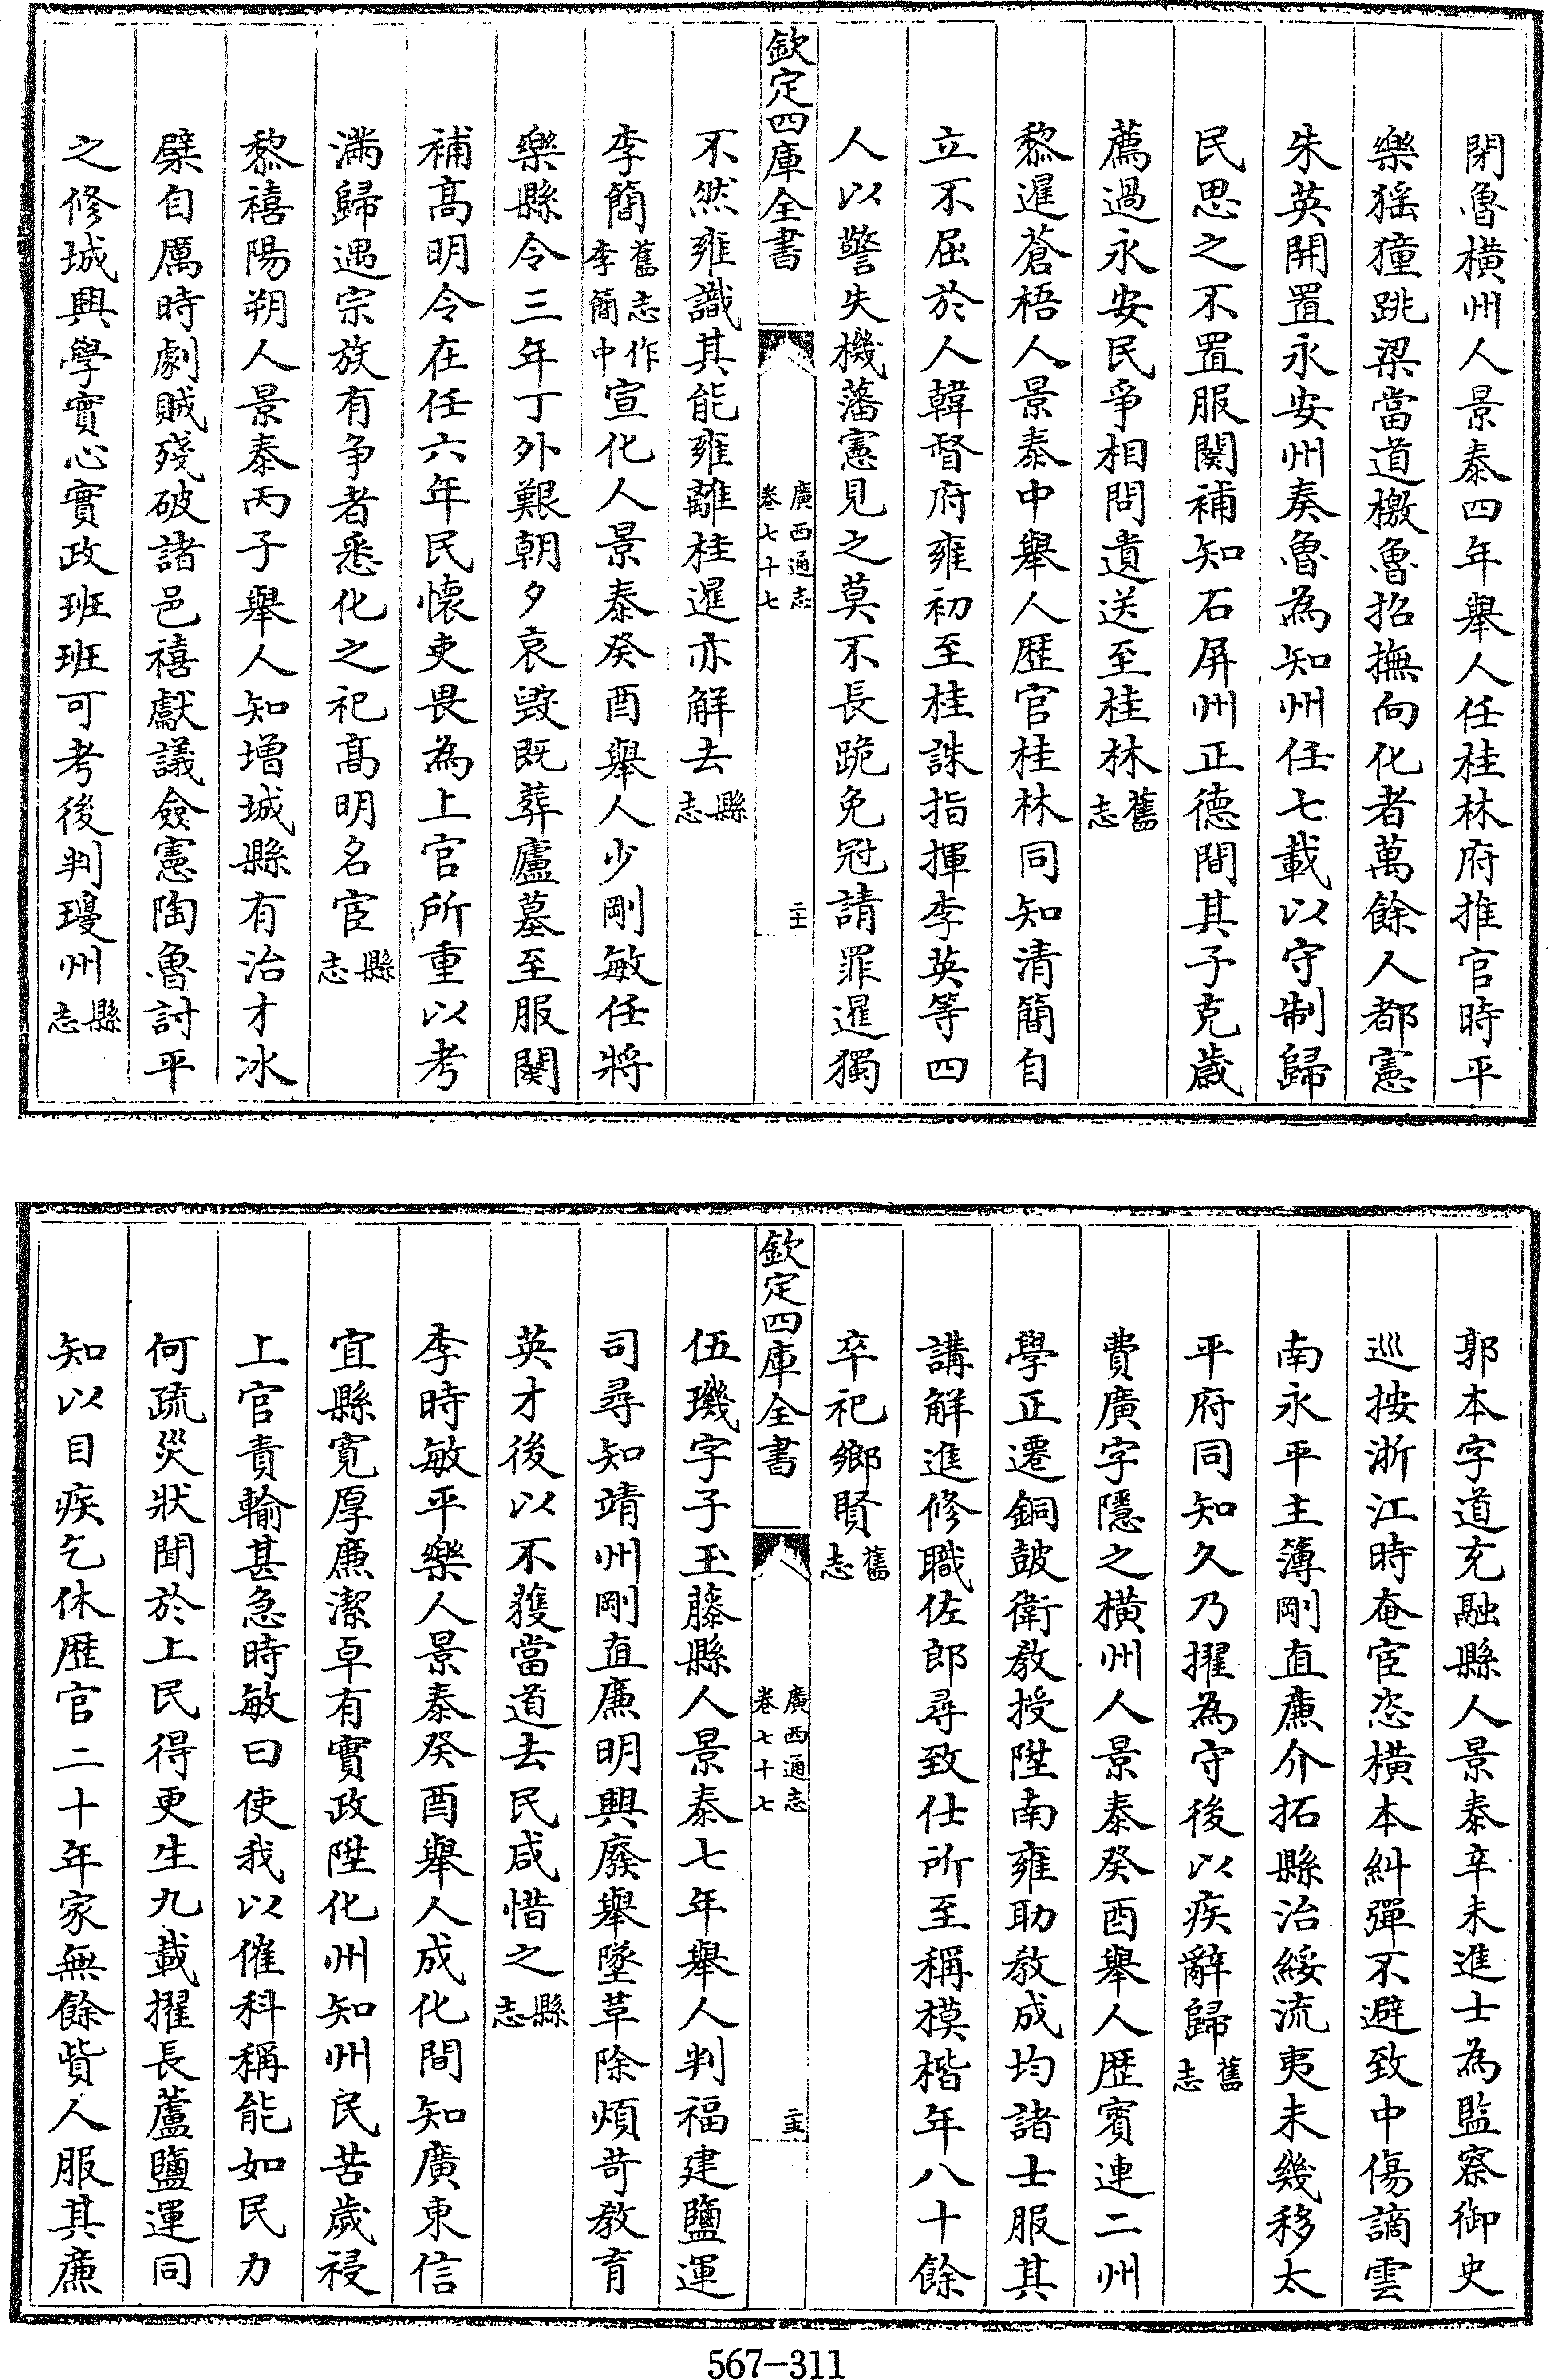 閉魯橫州人景泰四年舉人任桂林府推官時平
樂猺獞跳梁當道檄魯招撫向化者萬餘人都憲
朱英開置永安州奏魯為知州任七載以守制歸
民思之不置服闋補知石屏州正德間其子克歲
薦過永安民爭相問遺送至桂林舊志
黎暹蒼梧人景泰中舉人歷官桂林同知清簡自
立不屈於人韓督府雍初至桂誅指揮李英等四
人以警失機藩憲見之莫不長跪免冠請罪暹獨
欽定四庫全書
廣西通志
卷七十七
二十
不然雍識其能雍離桂暹亦解去縣志
李簡舊志作李簡中宣化人景泰癸酉舉人少剛敏任將
樂縣令三年丁外艱朝夕哀毀既葬廬墓至服闋
補高明令在任六年民懷吏畏為上官所重以考
滿歸遇宗族有爭者悉化之祀高明名宦縣志
黎禧陽朔人景泰丙子舉人知增城縣有治才冰
檗自厲時劇賊殘破諸邑禧獻議僉憲陶魯討平
之修城興學實心實政班班可考後判瓊州縣志
郭本字道充融縣人景泰辛未進士為監察御史
巡按浙江時奄宦恣橫本糾彈不避致中傷謫雲
南永平主簿剛直廉介拓縣治綏流夷未幾移太
平府同知久乃擢為守後以疾辭歸舊志
費廣字隱之橫州人景泰癸酉舉人歷賓連二州
學正遷銅鼓衛教授陞南雍助教成均諸士服其
講解進修職佐郎尋致仕所至稱模楷年八十餘
卒祀鄉賢舊志
欽定四庫全書
廣西通志
卷七十七
二十一
伍璣字子玉藤縣人景泰七年舉人判福建鹽運
司尋知靖州剛直廉明興廢舉墜革除煩苛教育
英才後以不獲當道去民咸惜之縣志
李時敏平樂人景泰癸酉舉人成化間知廣東信
宜縣寬厚廉潔卓有實政陞化州知州民苦歲祲
上官責輸甚急時敏曰使我以催科稱能如民力
何疏災狀聞於上民得更生九載擢長蘆鹽運同
知以目疾乞休歷官二十年家無餘貲人服其廉
567-311